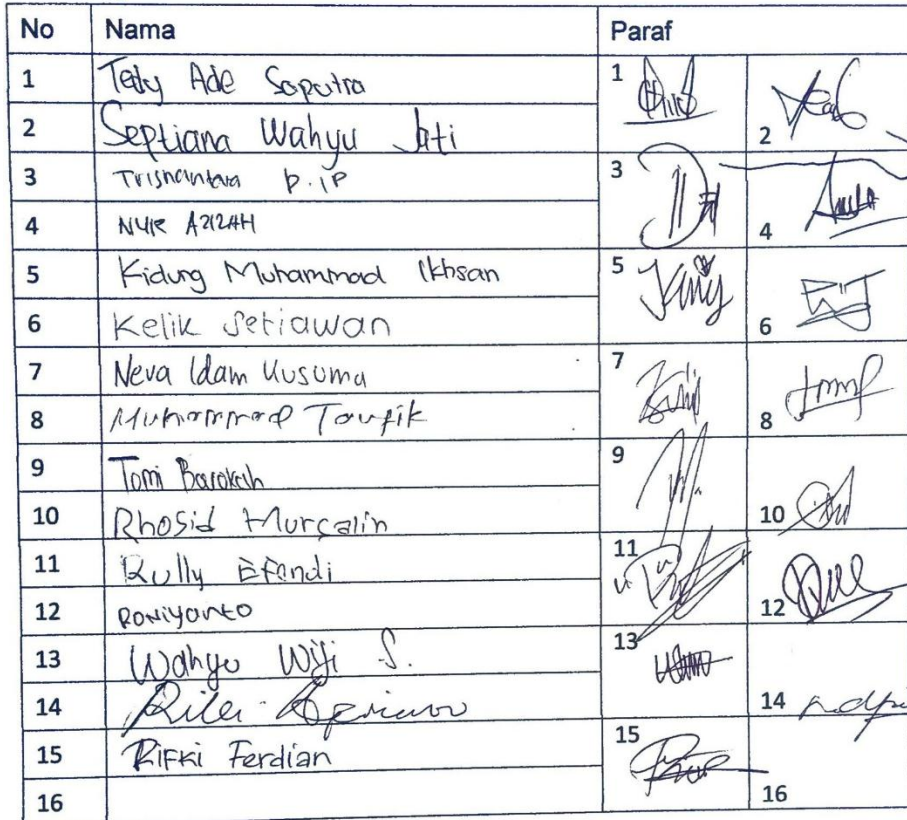 No Nama Paraf
1 Tedy Ade Saputra 1
2 Septiana Wahyu Jati 2
3 Trisnantara P.IP 3
4 NUR AZIZAH 4
5 Kidung Muhammad Ikhsan 5
6 Kelik Setiawan 6
7 Neva Idam Kusuma 7
8 Muhammad Taufik 8
9 Tomi Barokah 9
10 Rhosid Mursalin 10
11 Rully Efendi 11
12 Roniyanto 12
13 Wahyu Wiji S. 13
14 14
15 Rifki Ferdian 15
16 16